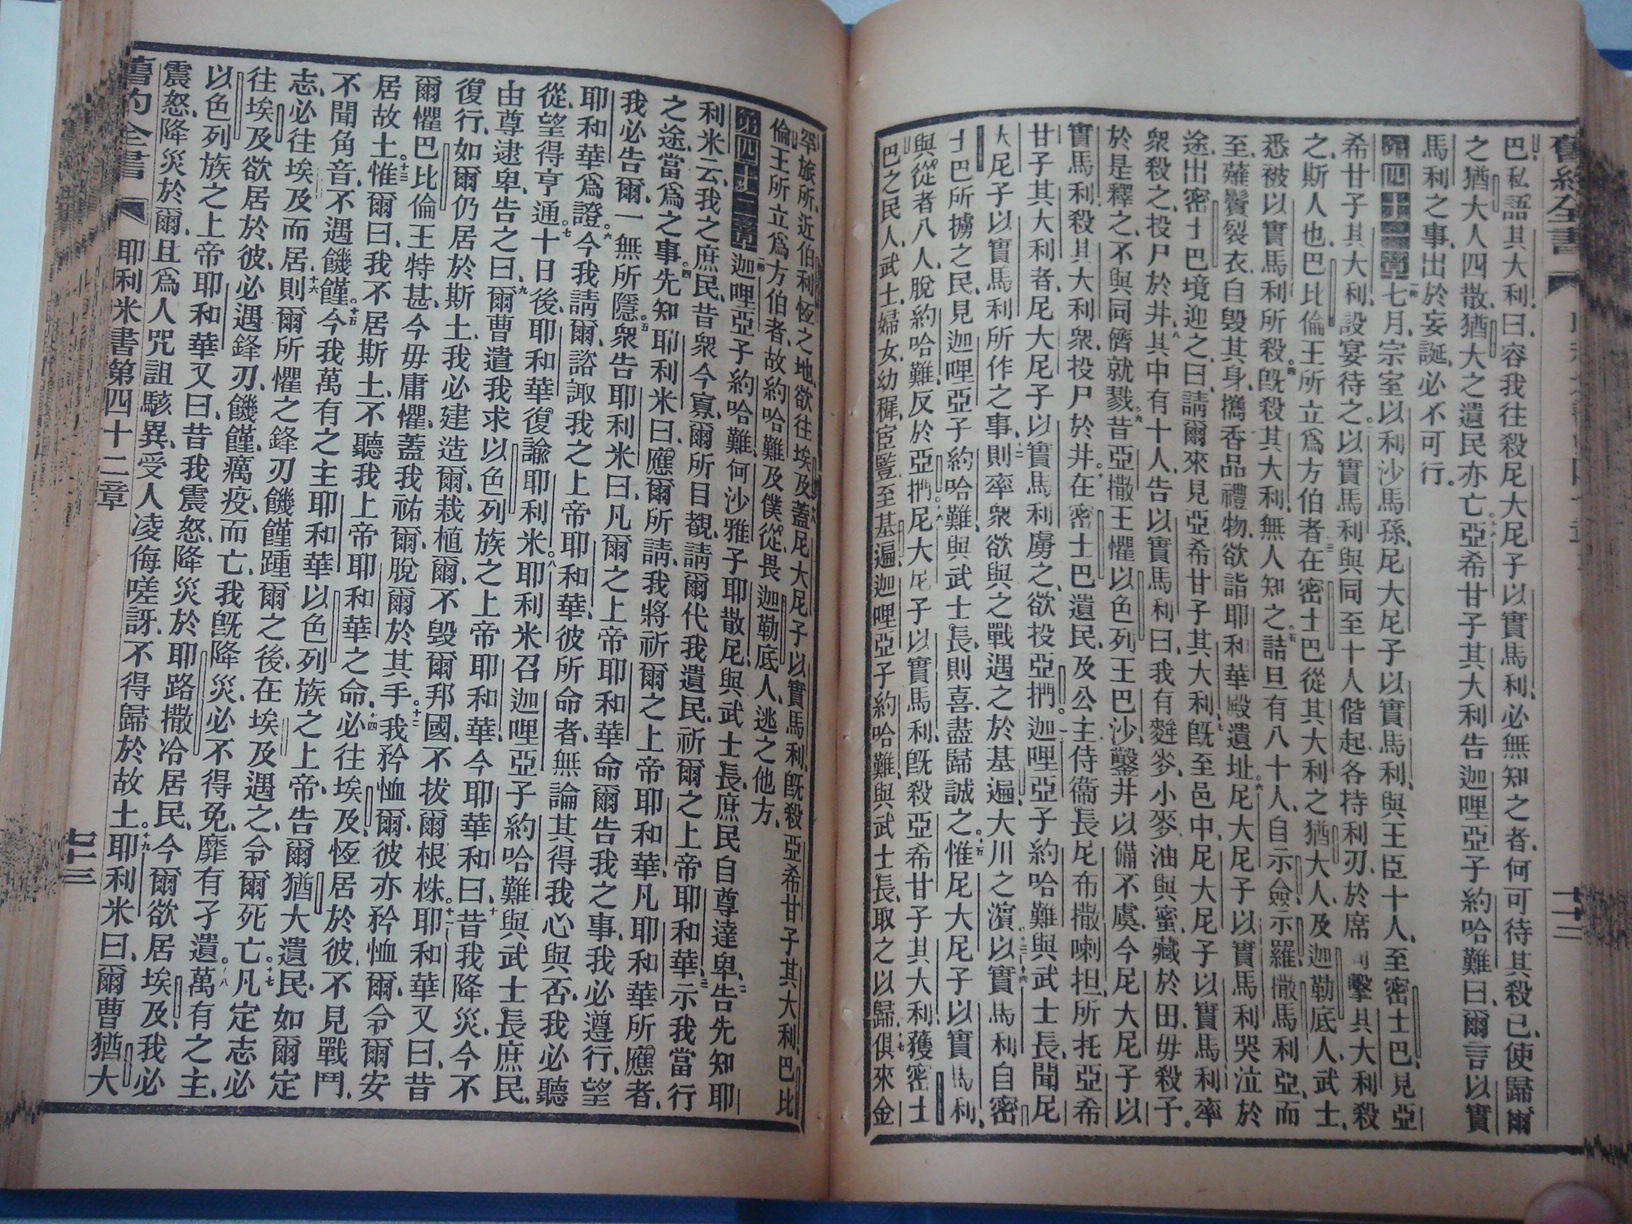 巴私語其大利曰容我往殺尼大尼子以實馬利必無知之者何可待其殺已使歸爾
之猶大人四散猶大之遺民亦亡亞希甘子其大利告迦哩亞子約哈難曰爾言以實
馬利之事出於妄誕必不可行
第四十一章七月宗室以利沙馬孫尼大尼子以實馬利與王臣十人至密士巴見亞
希甘子其大利設宴待之以實馬利與同至十人偕起各持利刃於席擊其大利殺
之斯人也巴比倫王所立爲方伯者在密士巴從其大利之猶大人及迦勒底人武士
悉被以實馬利所殺旣殺其大利無人知之詰旦有八十人自示劍示羅撒馬利亞而
至薙鬚裂衣自毀其身攜香品禮物欲詣耶和華殿遺址尼大尼子以實馬利哭泣於
途出密士巴境迎之曰請爾來見亞希甘子其大利旣至邑中尼大尼子以實馬利率
衆殺之投尸於井其中有十人告以實馬利曰我有麰麥小麥油與蜜藏於田毋殺予
於是釋之不與同儕就戮昔亞撒王懼以色列王巴沙鑿井以備不虞今尼大尼子以
實馬利殺其大利衆投尸於井在密士巴遺民及公主侍衞長尼布撒喇担所托亞希
甘子其大利者尼大尼子以實馬利虜之欲投亞捫迦哩亞子約哈難與武士長聞尼
大尼子以實馬利所作之事則率衆欲與之戰遇之於基遍大川之濱以實馬利自密
士巴所擄之民見迦哩亞子約哈難與武士長則喜盡歸誠之惟尼大尼子以實馬利
與從者八人脫約哈難反於亞捫尼大尼子以實馬利旣殺亞希甘子其大利獲密士
巴之民人武士婦女幼穉宦豎至基遍迦哩亞子約哈難與武士長取之以歸俱來金
罕旅所近伯利恆之地欲往埃及蓋尼大尼子以實馬利旣殺亞希甘子其大利巴比
倫王所立爲方伯者故約哈難及僕從畏迦勒底人逃之他方
第四十二章迦哩亞子約哈難何沙雅子耶散尼與武士長庶民自尊達卑告先知耶
利米云我之庶民昔衆今寡爾所目覩請爾代我遺民祈爾之上帝耶和華示我當行
之途當爲之事先知耶利米曰應爾所請我將祈爾之上帝耶和華凡耶和華所應者
我必告爾一無所隱衆告耶利米曰凡爾之上帝耶和華命爾告我之事我必遵行望
耶和華爲證今我請爾諮諏我之上帝耶和華彼所命者無論其得我心與否我必聽
從望得亨通十日後耶和華復諭耶利米耶利米召迦哩亞子約哈難與武士長庶民
由尊逮卑告之曰爾曹遣我求以色列族之上帝耶和華今耶華和曰昔我降災今不
復行如爾仍居於斯土我必建造爾栽植爾不毀爾邦國不拔爾根株耶和華又曰昔
爾懼巴比倫王特甚今毋庸懼蓋我祐爾脫爾於其手我矜恤爾彼亦矜恤爾令爾安
居故土惟爾曰我不居斯土不聽我上帝耶和華之命必往埃及恆居於彼不見戰鬥
不聞角音不遇饑饉今我萬有之主耶和華以色列族之上帝告爾猶大遺民如爾定
志必往埃及而居則爾所懼之鋒刃饑饉踵爾之後在埃及遇之令爾死亡凡定志必
往埃及欲居於彼必遇鋒刃饑饉癘疫而亡我旣降災必不得免靡有孑遺萬有之主
以色列族之上帝耶和華又曰昔我震怒降災於耶路撒冷居民今爾欲居埃及我必
震怒降災於爾且爲人咒詛駭異受人凌侮嗟訝不得歸於故土耶利米曰爾曹猶大
舊約全書 耶利米書第四十二章 七十三